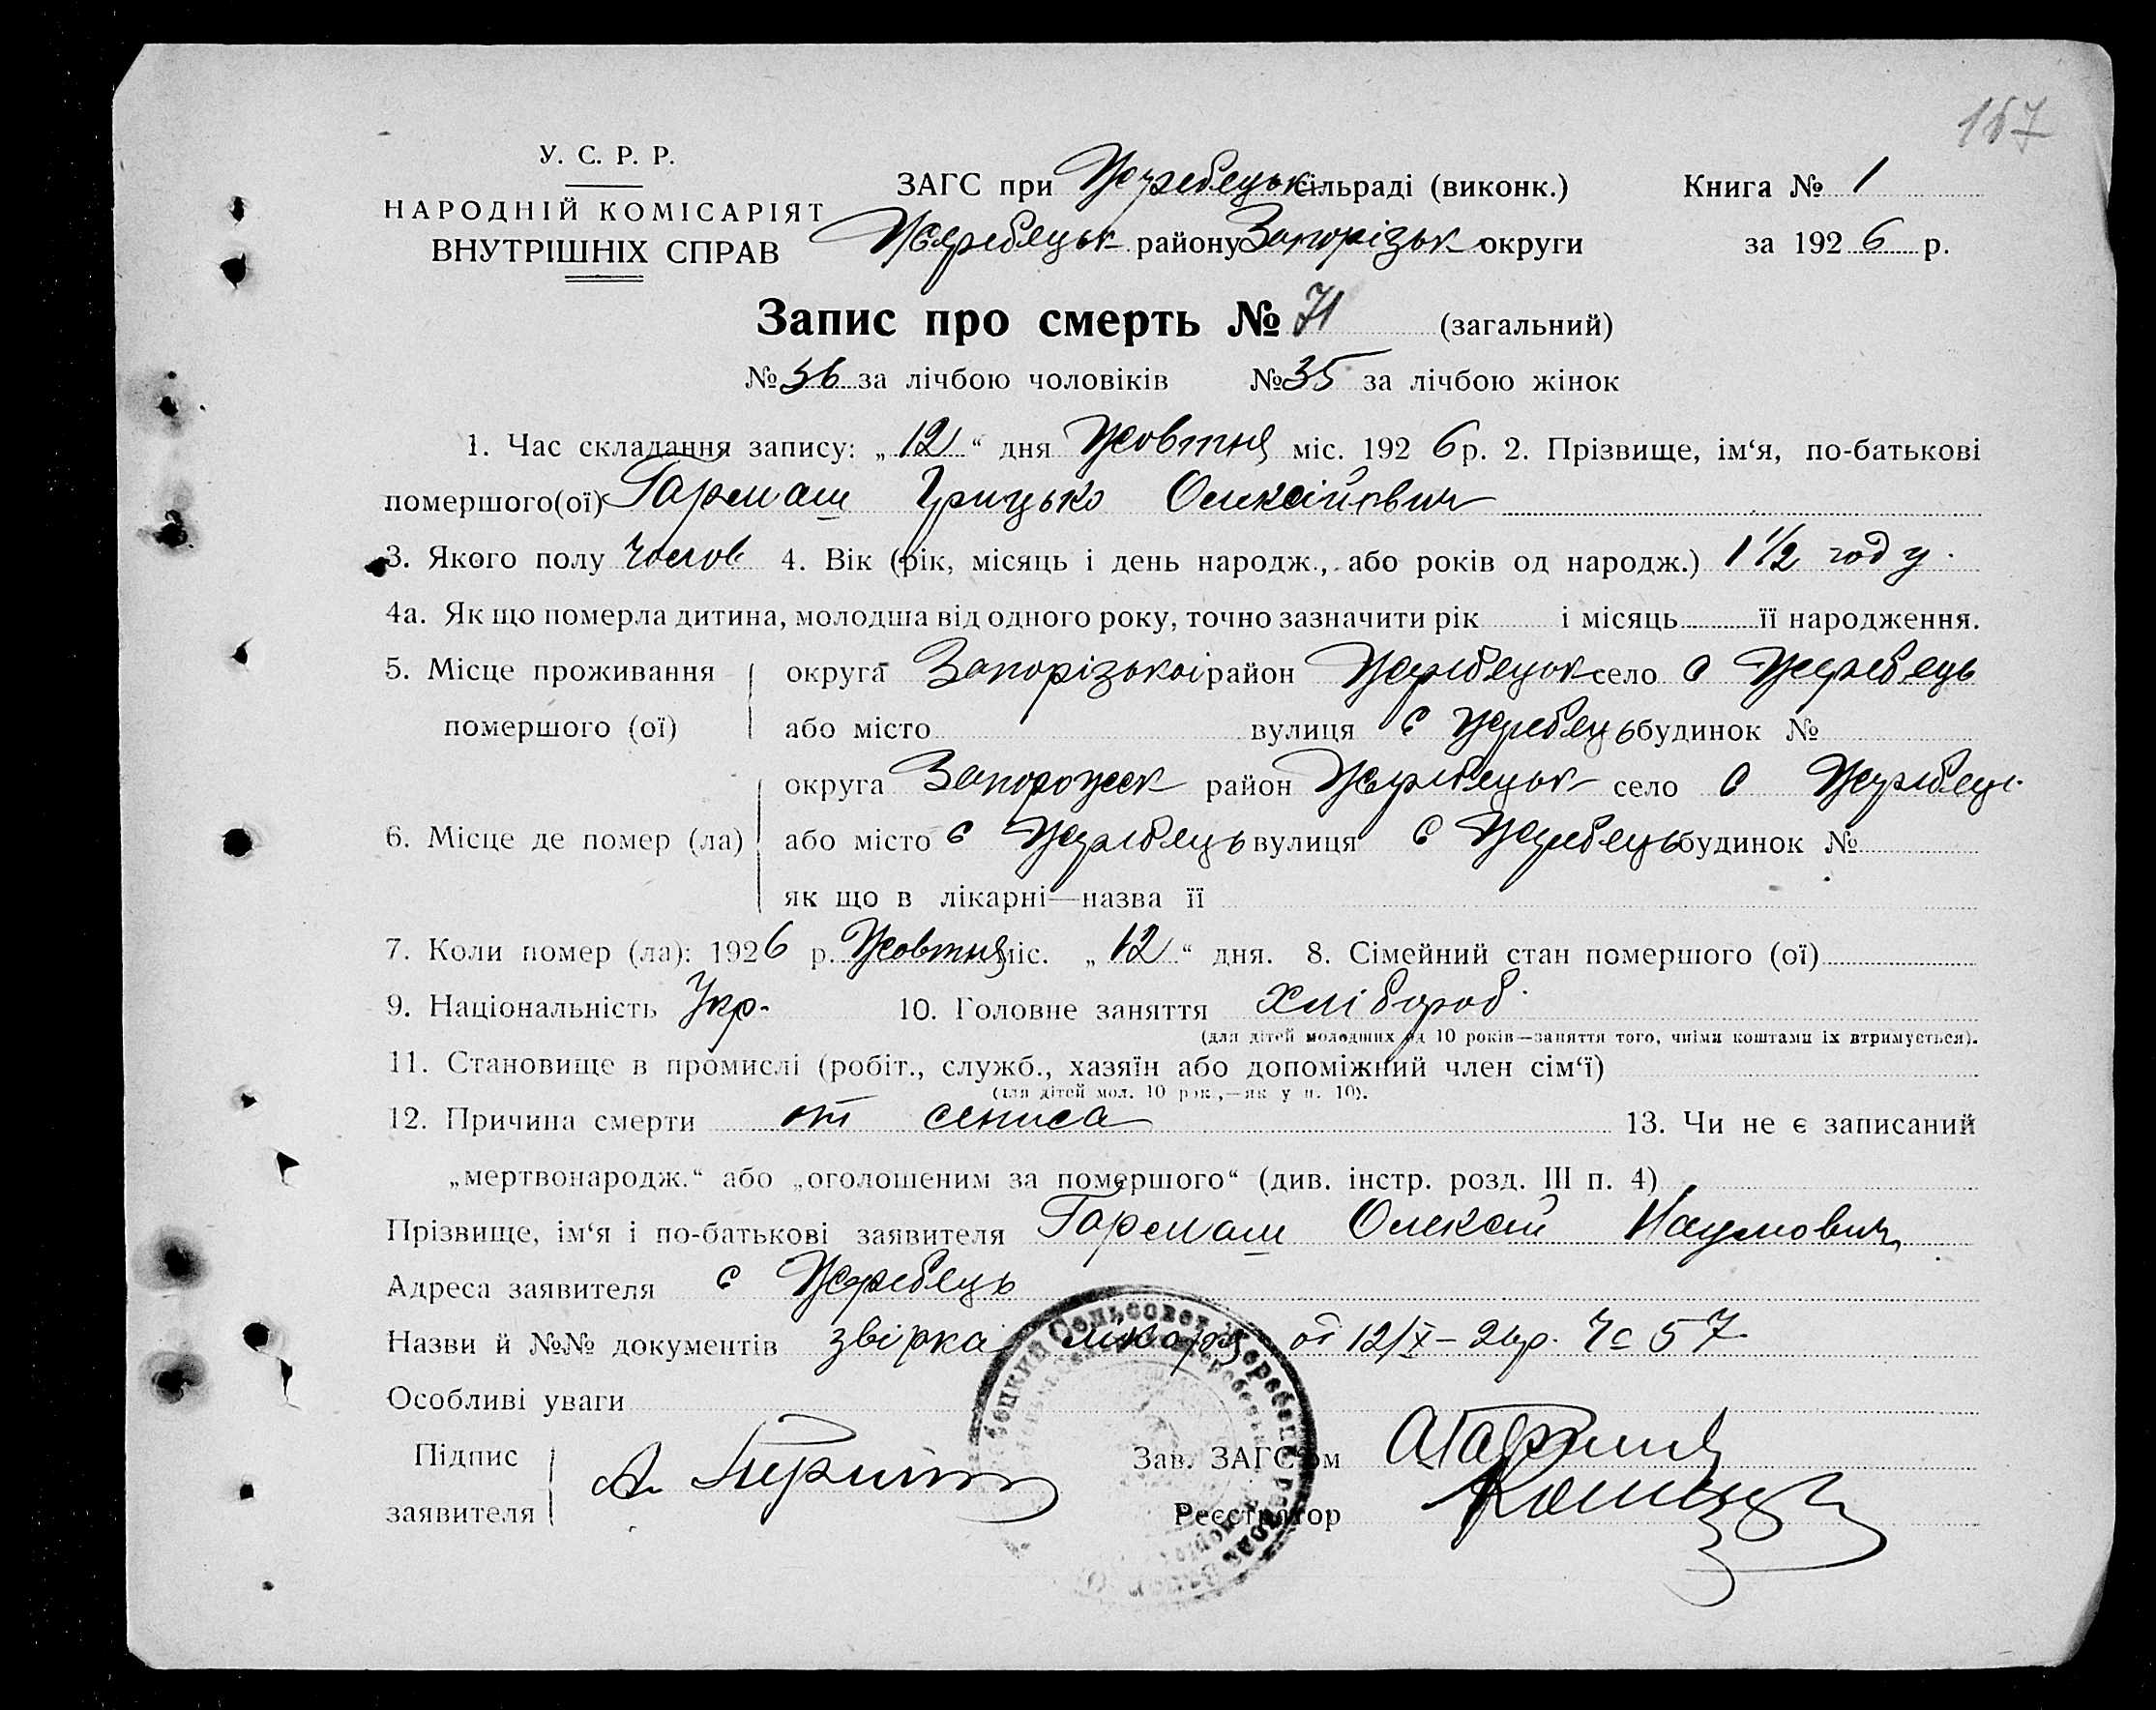 167
У. С. Р. Р.
НАРОДНІЙ КОМІСАРІЯТ
ВНУТРІШНІХ СПРАВ
ЗАГС при Жеребецьк сільраді (виконк.) Книга № 1
Жеребецьк району Запорізьк округи за 1926 р.
Запис про смерть № 71 (загальний)
№ 36 за лічбою чоловіків № 35 за лічбою жінок
1. Час складання запису: „12“ дня Жовтня міс. 1926 р. 2. Прізвище, ім‘я, по-батькові
помершого(ої) Гармаш Грицько Олексійович
3. Якого полу чолов 4. Вік (рік, місяць і день народж., або років од народж.) 1 1/2 году.
4а. Як що померла дитина, молодша від одного року, точно зазначити рік і місяць її народження.
5. Місце проживання помершого (ої) округа Запорізької район Жеребецьк село с Жеребець
або місто вулиця с Жеребець будинок №
6. Місце де помер (ла) округа Запорожск район Жеребецьк село с Жеребець
або місто с Жеребець вулиця с Жеребець будинок №
як що в лікарні—назва її
7. Коли помер (ла): 1926 р. Жовтня міс. „12“ дня. 8. Сімейний стан помершого (ої)
9. Національність Укр. 10. Головне заняття хлібороб.
(для дітей молодших од 10 років—заняття того, чиїми коштами їх втримується).
11. Становище в промислі (робіт., служб., хазяїн або допоміжний член сім‘ї)
(для дітей мол. 10 рок.,—як у п. 10).
12. Причина смерти от 13. Чи не є записаний
„мертвонародж.“ або „оголошеним за помершого“ (див. інстр. розд. III п. 4)
Прізвище, ім‘я і по-батькові заявителя Гармаш Олексій Наумович
Адреса заявителя с Жеребець
Назви й №№ документів звірка лікаря от 12/X–26р. Чс 57
Особливі уваги
Підпис заявителя А. Зав. ЗАГС‘ом
Реєстратор